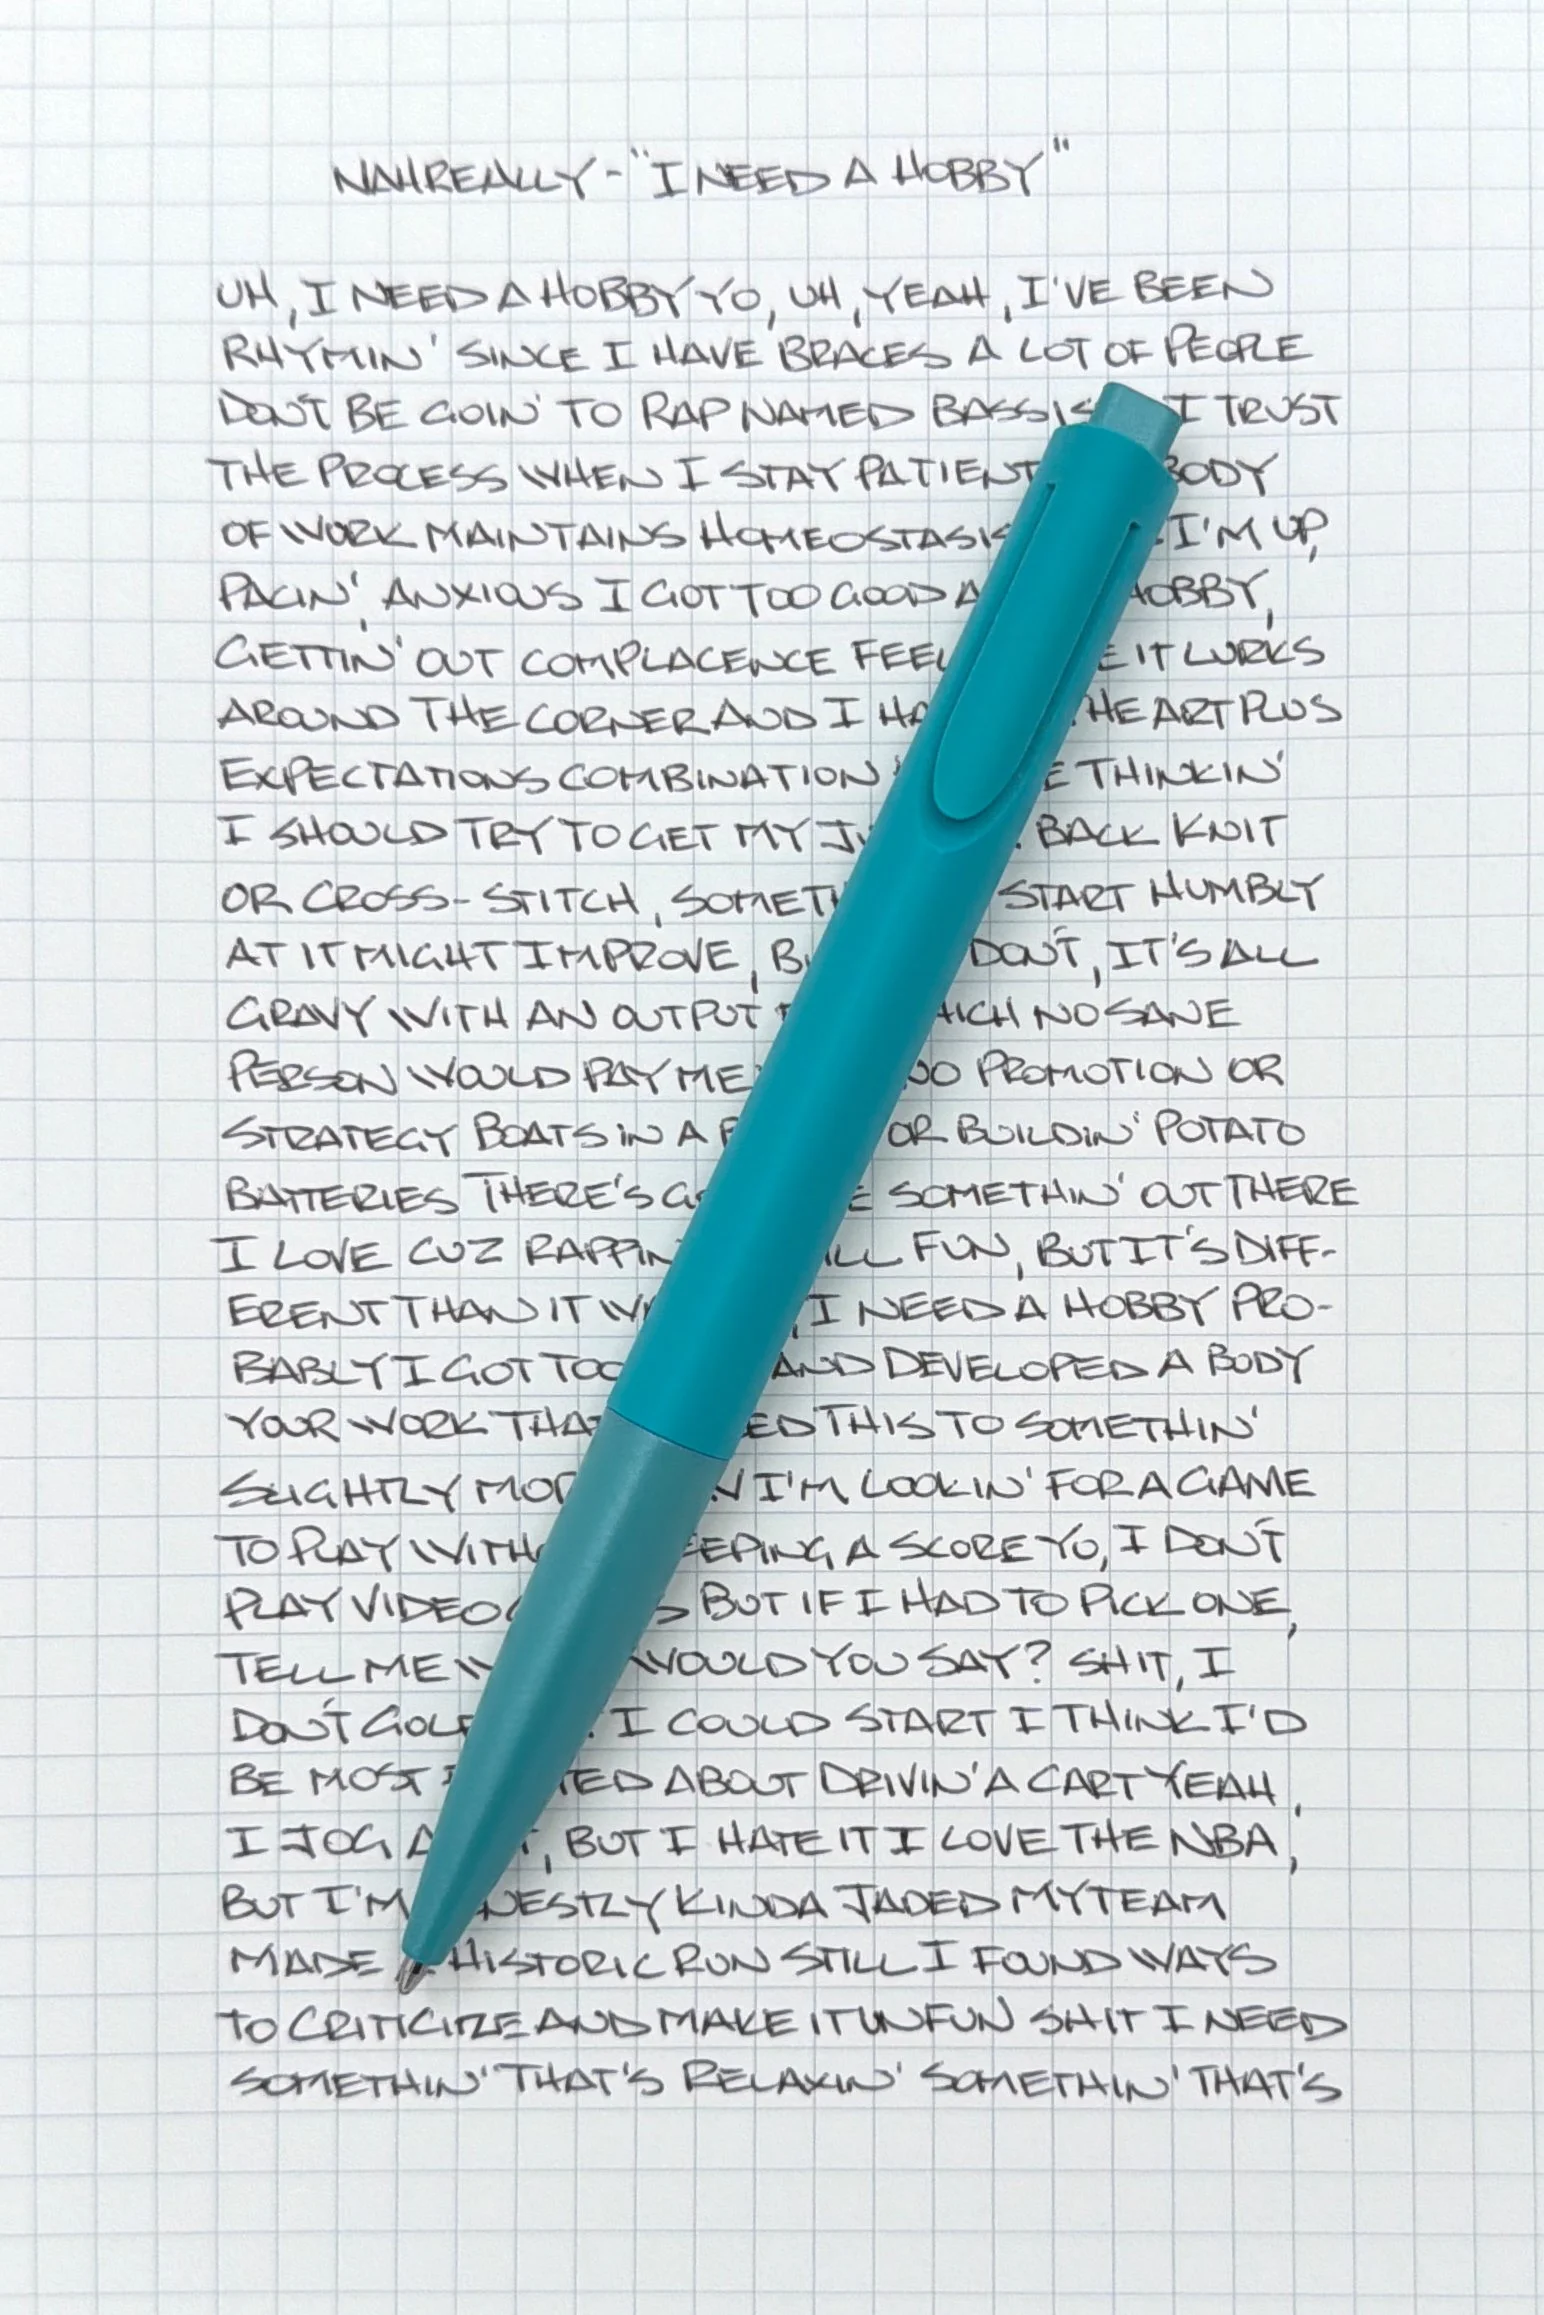 NAHREALLY - "I NEED A HOBBY"
UH, I NEED A HOBBY YO, UH, YEAH, I'VE BEEN
RHYMIN' SINCE I HAVE BRACES A LOT OF PEOPLE
DON'T BE GOIN' TO RAP NAMED I TRUST
THE PROCESS WHEN I STAY PATIENT BODY
OF WORK MAINTAINS HOMEOSTASIS I'M UP,
PACIN', ANXIOUS I GOT TOO GOOD A HOBBY,
GETTIN' OUT COMPLACENCE IT LURKS
AROUND THE CORNER AND I HEART PLUS
EXPECTATIONS COMBINATION THINKIN'
I SHOULD TRY TO GET MY BACK KNIT
OR CROSS-STITCH, START HUMBLY
AT IT MIGHT IMPROVE, DON'T, IT'S ALL
GRAVY WITH AN OUTPUT NO SANE
PERSON WOULD PAY ME NO PROMOTION OR
STRATEGY BOATS IN A OR BUILDIN' POTATO
BATTERIES THERE'S SOMETHIN' OUT THERE
I LOVE CUZ FUN, BUT IT'S DIFF-
ERENT THAN IT I NEED A HOBBY PRO-
BABLY I GOT TOO AND DEVELOPED A BODY
YOUR WORK THIS TO SOMETHIN'
SLIGHTLY I'M LOOKIN' FOR A GAME
TO PLAY A SCORE YO, I DON'T
PLAY VIDEO BUT IF I HAD TO PICK ONE,
TELL ME WOULD YOU SAY? SHIT, I
DON'T I COULD START I THINK I'D
BE MOST ABOUT DRIVIN' A CART YEAH,
I JOG BUT I HATE IT I LOVE THE NBA,
BUT I'M KINDA JADED MY TEAM
MADE HISTORIC RUN STILL I FOUND WAYS
TO CRITICIZE AND MAKE IT UNFUN SHIT I NEED
SOMETHIN' THAT'S RELAXIN' SOMETHIN' THAT'S